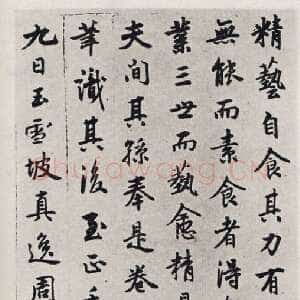 精藝自食其力有
無能而素食者得
業三世而藝愈精
夫間其孫奉是卷
筆識其後至正
九日玉雪坡真逸周